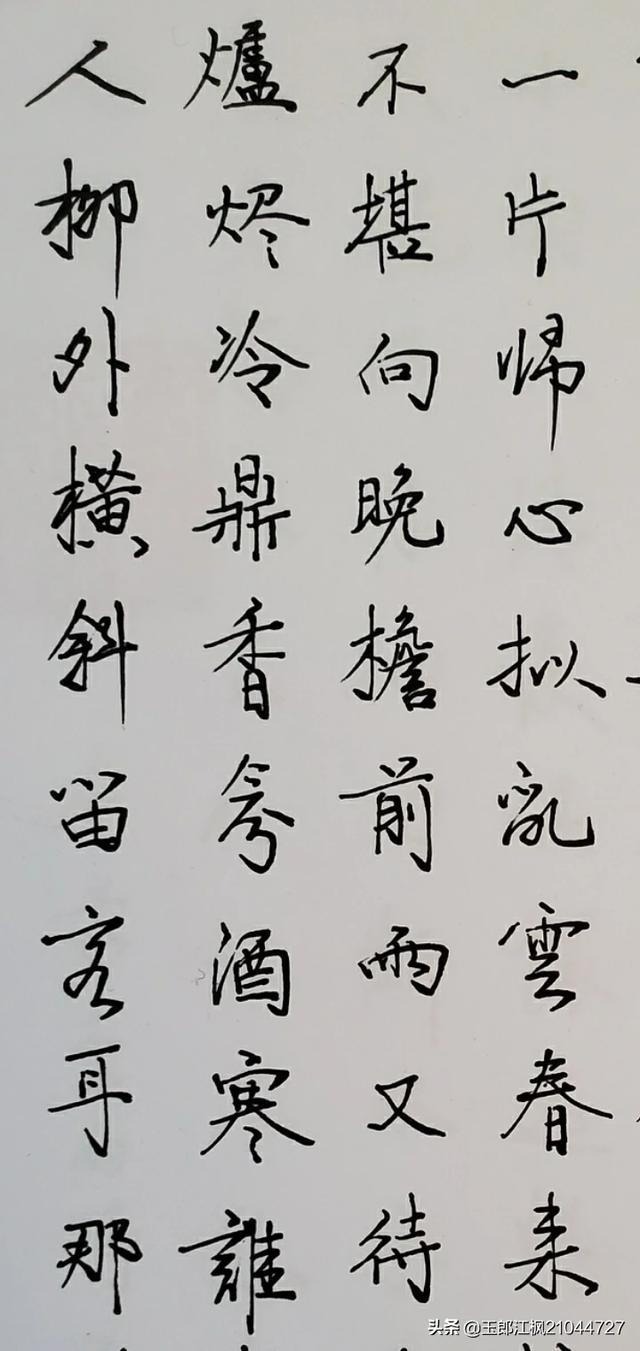 一片帰心拟乱雲春来
不堪向晚檐前雨又待
爐烬冷鼎香氛酒寒誰
人柳外横斜笛客耳那
头条 @玉郎江枫21044727